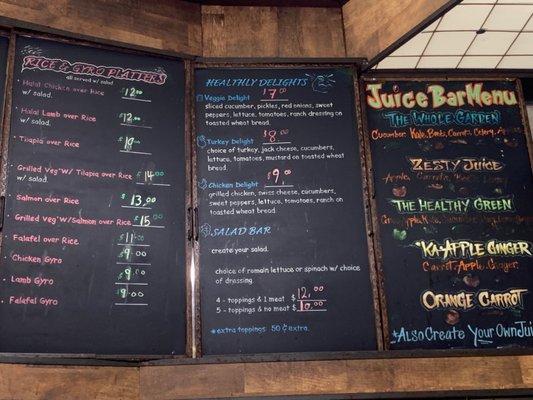 RICE & GYRO PLATTERS
all served w/ salad
* Halal Chicken over Rice $12.00
w/ salad.
* Halal Lamb over Rice $12.00
w/ salad.
* Tilapia over Rice
* Grilled Veg W/ Tilapia over Rice $14.00
w/ salad.
* Salmon over Rice $13.00
Grilled Veg'W/Salmon over Rice $15.00
Falafel over Rice $11.00
Chicken Gyro $9.00
Lamb Gyro $9.00
Falafel Gyro $9.00
HEALTHLY DELIGHTS
Veggie Delight $7.00
sliced cucumber, pickles, red onions, sweet
peppers, lettuce, tomatoes, ranch dressing on
toasted wheat bread.
Turkey Delight $8.00
choice of turkey, jack cheese, cucumbers,
lettuce, tomatoes, mustard on toasted
wheat bread.
Chicken Delight $9.00
grilled chicken, swiss cheese, cucumbers,
sweet peppers, lettuce, tomatoes, ranch on
toasted wheat bread.
SALAD BAR
create your salad.
choice of romain lettuce or spinach w/ choice
of dressing.
4 - toppings & 1 meat $12.00
5 - toppings & no meat $10.00
*extra toppings 50¢ extra.
Juice Bar Menu
THE WHOLE GARDEN
Cucumber, Kale, Beets, Carrots, Celery, Apple
ZESTY JUICE
Apple,
THE HEALTHY GREEN
*KA-APPLE GINGER
Carrot, Apple, Ginger
ORANGE CARROT
*Also Create Your Own Jui